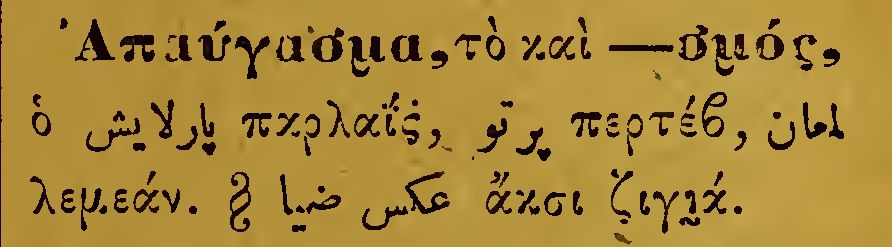 Ἀπαύγασμα, τὸ καὶ —σμός,
ὁ پارلايش παρλαΐς̇, پرتو περτέβ, لمعان
λεμεάν. § عكس ضيا ἄκσι ζιγιά.